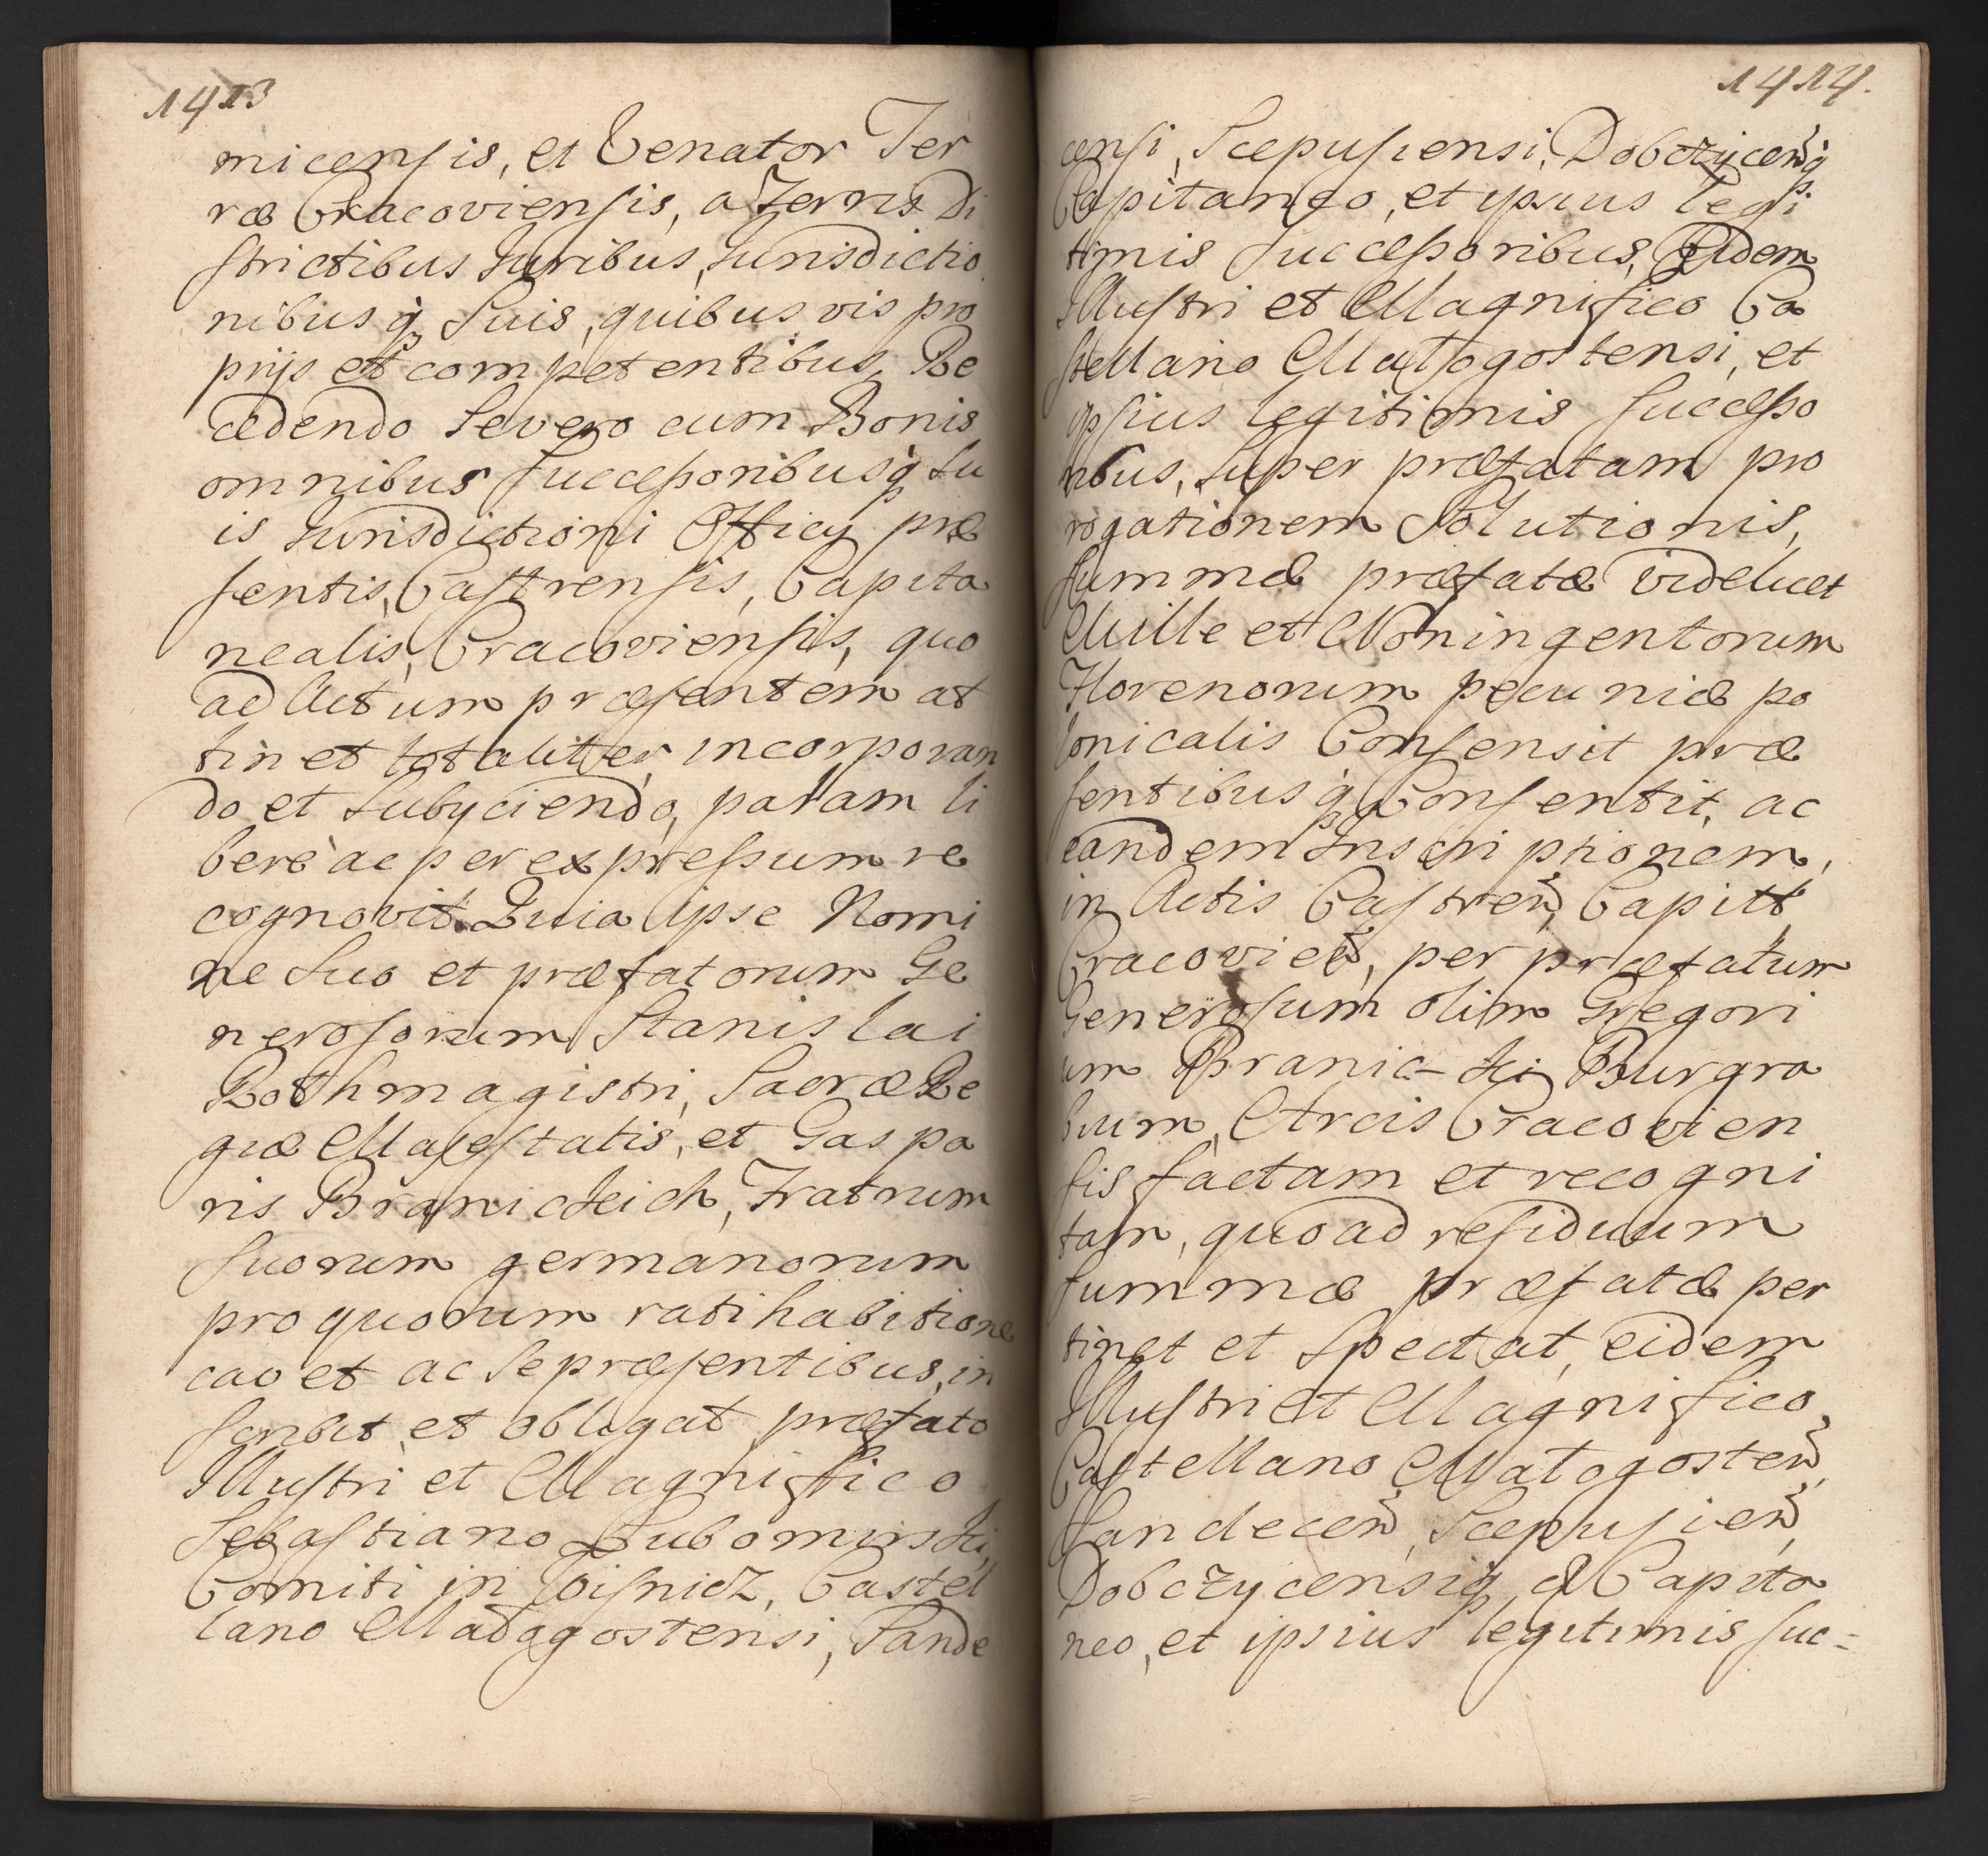 1413
micensis, et Venator Ter
ræ Cracoviensis, a Terris Di
strictibus Juribus, Jurisdictio
nibusq; Suis, quibusvis pro
prijs et competentibus, Re
cedendo Se vero cum Bonis
omnibus Successoribusq; Su
is Jurisdictioni Officij præ
sentis, Castrensis, Capita
nealis, Cracoviensis, quo
ad Actum præsentem at
tinet totaliter, incorporan
do et Subyciendo, palam li
bere ac per expressum re
cognovit. Quia ipse Nomi
ne Suo et præfatorum Ge
nerosorum Stanislai
Rothmagistri, Sacræ Re
giæ Majestatis, et Gaspa
ris Branickich, Fratrum
Suorum germanorum
pro quorum ratihabitione
cavet ac Se præsentibus, in
scribit et obligat præfato
Illustri et Magnifico
Sebastiano Lubomirski,
Comiti in Wisnicz, Castel
lano Małogostensi, Sande
1414.
censi, Scepusiensi, Dobczyceñq;
Capitaneo, et ipsius legi
timis Successoribus, Eidem
Illustri et Magnifico Ca
stellano Małogostensi, et
ipsius legitimis Successo
ribus, Super præfatam pro
rogationem Solutionis,
Summæ præfatæ videlicet
Mille et Noningentorum
Florenorum pecuniæ po
lonicalis Consensit præ
sentibusq; Consentit, ac
eandem Inscriptionem,
in Actis Castreñ, Capitt
Cracovieñ, per præfatum
Generosum olim Gregori
um Branic-ki Burgra
bium, Arcis Cracovien
sis factam et recogni
tam, quoad residuum
Summæ præfatæ per
tinet et Spectat, eidem
Illustri et Magnifico,
Castellano Małogosteñ,
Sandeceñ, Scepusieñ,
Dobczycensiq; & Capita
neo, et ipsius legitimis Suc=